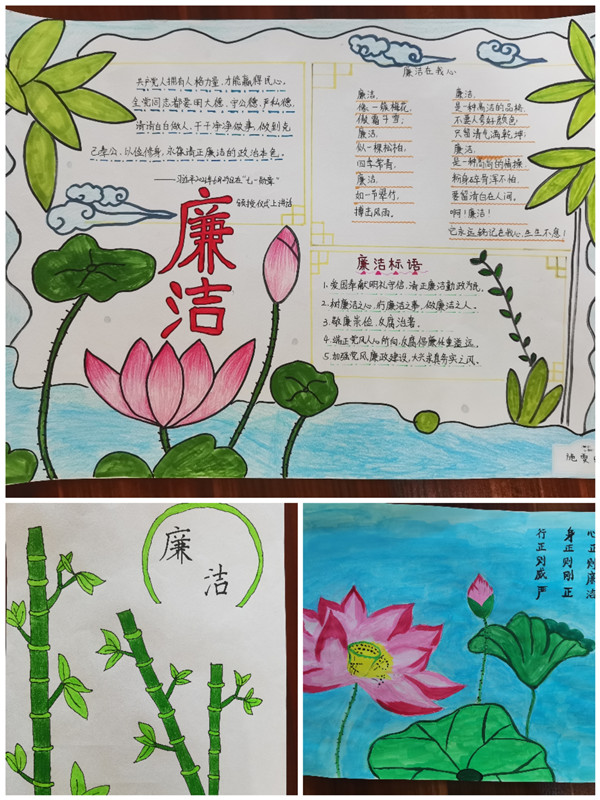 共产党人拥有人格力量,才能赢得民心。
全党同志都要明大德、守公德、严私德,
清清白白做人、干干净净做事,做到克
己奉公、以俭修身,永葆清正廉洁的政治本色。
勋章授仪式上讲话
廉洁
廉洁在我心
廉洁,
像一簇梅花,
傲霜斗雪;
廉洁,
似一棵松柏,
四季常青;
廉洁,
如一节翠竹,
搏击风雨。
廉洁,
是一种高洁的品格,
不要人夸好颜色,
只留清气满乾坤;
廉洁,
是一种高尚的情操,
粉身碎骨浑不怕,
要留清白在人间。
啊!廉洁!
它永远铭记在我心,生生不息!
廉洁标语
1、爱国奉献明礼守信,清正廉洁勤政为民。
2、树廉洁之心,行廉洁之事,做廉洁之人。
3、敬廉崇俭、反腐治奢。
4、端正党风人心所向,反腐倡廉任重道远。
5、加强党风廉政建设,大兴求真务实之风。
廉洁
心正则廉洁
身正则刚正
行正则威严